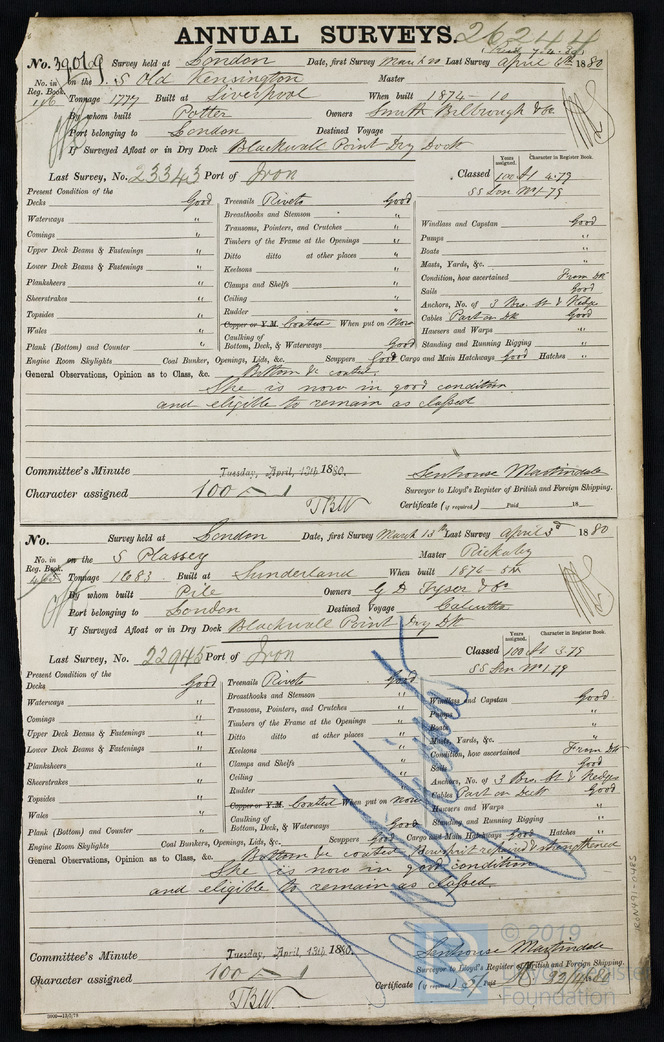 ANNUAL SURVEYS. 26244
No. 39019 Survey held at London Date, first Survey March 20 Last Survey April 6th 1880
No. in Reg. Book. on the S Old Kensington Master
Tonnage 1777 Built at Liverpool When built 1874-10
By whom built Potter Owners Smith Bilbrough & Co
Port belonging to London Destined Voyage
If Surveyed Afloat or in Dry Dock Blackwall Point Dry Dock
Last Survey, No. 23343 Port of Iron Classed Years assigned. 100 A1 Character in Register Book. 4.79
SS Lon No 1-79
Present Condition of the
Decks Good Treenails Rivets Good
Waterways " Breasthooks and Stemson " Windlass and Capstan Good
Comings " Transoms, Pointers, and Crutches " Pumps "
Upper Deck Beams & Fastenings " Timbers of the Frame at the Openings " Boats "
Lower Deck Beams & Fastenings " Ditto ditto at other places " Masts, Yards, &c. "
Planksheers " Keelsons " Condition, how ascertained From Dk
Sheerstrakes " Clamps and Shelfs " Sails Good
Topsides " Ceiling " Anchors, No. of 3 Bro. St & Kedge
Wales " Rudder " Cables Part on Dk Good
Copper or Y.M. Coated When put on Now Hawsers and Warps "
Plank (Bottom) and Counter " Caulking of Bottom, Deck, & Waterways Good Standing and Running Rigging "
Engine Room Skylights Coal Bunker, Openings, Lids, &c. Scuppers Good Cargo and Main Hatchways Good Hatches "
General Observations, Opinion as to Class, &c. Bottom &c coated.
She is now in good condition
and eligible to remain as classed
Committee's Minute Tuesday, April, 13th 1880. Senhouse Martindale
Character assigned 100 A 1 Surveyor to Lloyd's Register of British and Foreign Shipping.
TBW Certificate (if required) Paid 18
No. Survey held at London Date, first Survey March 13th Last Survey April 3d 1880
No. in Reg. Book. on the S Plassey Master Rickaby
465 Tonnage 1683 Built at Sunderland When built 1874 5m
By whom built Pile Owners G D Tyser & Co
Port belonging to London Destined Voyage Calcutta
If Surveyed Afloat or in Dry Dock Blackwall Point Dry Dk
Last Survey, No. 22945 Port of Iron Classed Years assigned. 100 A1 Character in Register Book. 3.79
SS Lon No 1.79
Present Condition of the
Decks Good Treenails Rivets Good
Waterways " Breasthooks and Stemson " Windlass and Capstan Good
Comings " Transoms, Pointers, and Crutches " Pumps "
Upper Deck Beams & Fastenings " Timbers of the Frame at the Openings " Boats "
Lower Deck Beams & Fastenings " Ditto ditto at other places " Masts, Yards, &c. "
Planksheers " Keelsons " Condition, how ascertained From Dk
Sheerstrakes " Clamps and Shelfs " Sails Good
Topsides " Ceiling " Anchors, No. of 3 Bro. St & Kedges
Wales " Rudder " Cables Part on Deck Good
Copper or Y.M. Coated When put on now Hawsers and Warps "
Plank (Bottom) and Counter " Caulking of Bottom, Deck, & Waterways Good Standing and Running Rigging "
Engine Room Skylights Coal Bunkers, Openings, Lids, &c. Scuppers Good Cargo and Main Hatchways Good Hatches "
General Observations, Opinion as to Class, &c. Bottom &c coated Bowsprit repaired & strengthened
She is now in good condition
and eligible to remain as classed.
Committee's Minute Tuesday, April, 13th 1880. Senhouse Martindale
Character assigned 100 A 1 Surveyor to Lloyd's Register of British and Foreign Shipping.
TBW Certificate (if required) Paid
© 2019
Foundation
RON491-0485